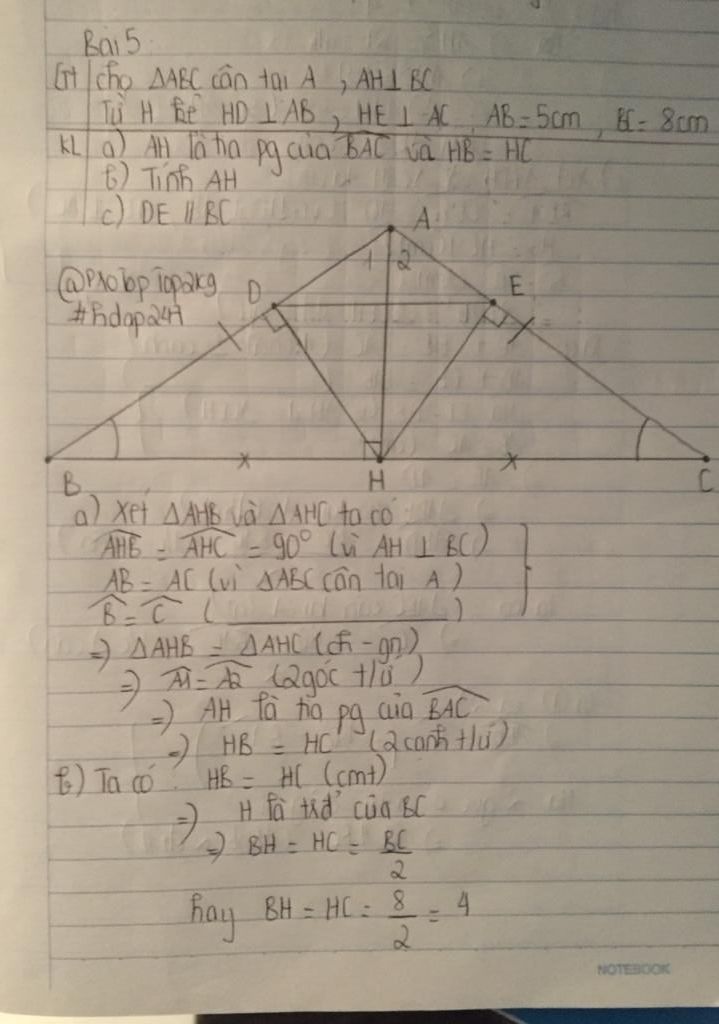 Bài 5
GT cho ΔABC cân tại A , AH ⊥ BC
Từ H kẻ HD ⊥ AB , HE ⊥ AC , AB = 5cm , BC = 8cm
KL a) AH là tia pg của BAC và HB = HC
b) Tính AH
c) DE // BC
A
1 2
@proTopTop2kg
#hdap247
D
E
B
H
C
a) Xét ΔAHB và ΔAHC ta có
AHB = AHC = 90° (vì AH ⊥ BC)
AB = AC (vì ΔABC cân tại A)
B = C ( __________ )
=> ΔAHB = ΔAHC (ch - gn)
=> A1 = A2 (2 góc t/ứ)
=> AH là tia pg của BAC
=> HB = HC (2 cạnh t/ứ)
b) Ta có HB = HC (cmt)
=> H là trđ của BC
=> BH = HC = BC/2
hay BH = HC = 8/2 = 4
NOTEBOOK